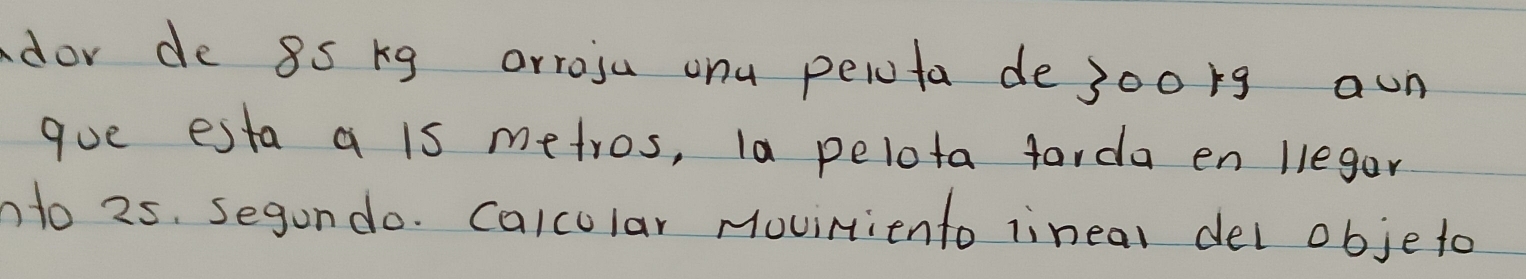 dor de 85 kg arroja una pelota de 300 kg aun
que esta a 15 metros, la pelota tarda en llegar
nto 25. segundo. Calcular Movimiento lineal del objeto